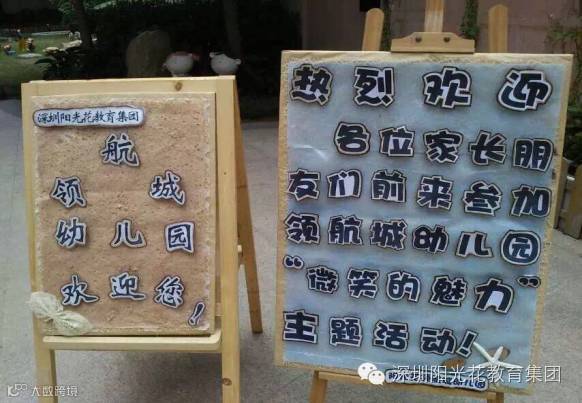 深圳阳光花教育集团
航
领 城
幼儿园
欢迎您!
热烈欢迎
各位家长朋
友们前来参加
领航城幼儿园
“微笑的魅力”
主题活动!
深圳阳光花教育集团
大数跨境